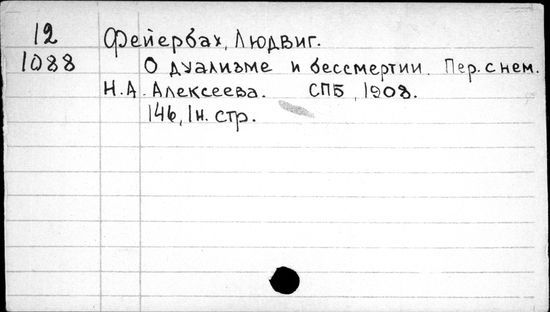 12
1088
Фейербах, Людвиг.
О дуализме и бессмертии. Пер. с нем.
Н.А. Алексеева. СПБ, 1908.
146, 1н. стр.